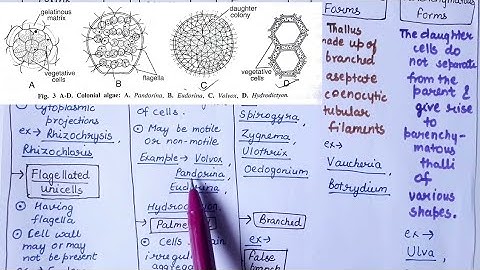 gelatinous
matrix
daughter
colony
vegetative
cells
flagella
vegetative
cells
A
B
C
D
Fig. 3 A-D. Colonial algae: A. Pandorina, B. Eudorina, C. Volvox, D. Hydrodictyon.
Cytoplasmic
projections
ex → Rhizochrysis,
Rhizochloris
→ Flagellated
unicells
Having
flagella
Cell wall
may or may
not be present
of cells.
May be motile
or non-motile
Example → Volvox,
Pandorina,
Eudorina,
→
Cells
Spirogyra,
Zygnema,
Ulothrix,
Oedogonium
→ Branched
ex →
False
Forms
Thallus
made up of
branched
aseptate
coenocytic
tubular
filaments
ex →
Vaucheria,
Botrydium
Forms
The daughter
cells do
not separate
from the
parent &
give rise
to
parenchy-
matous
thalli
of
various
shapes.
ex →
Ulva,